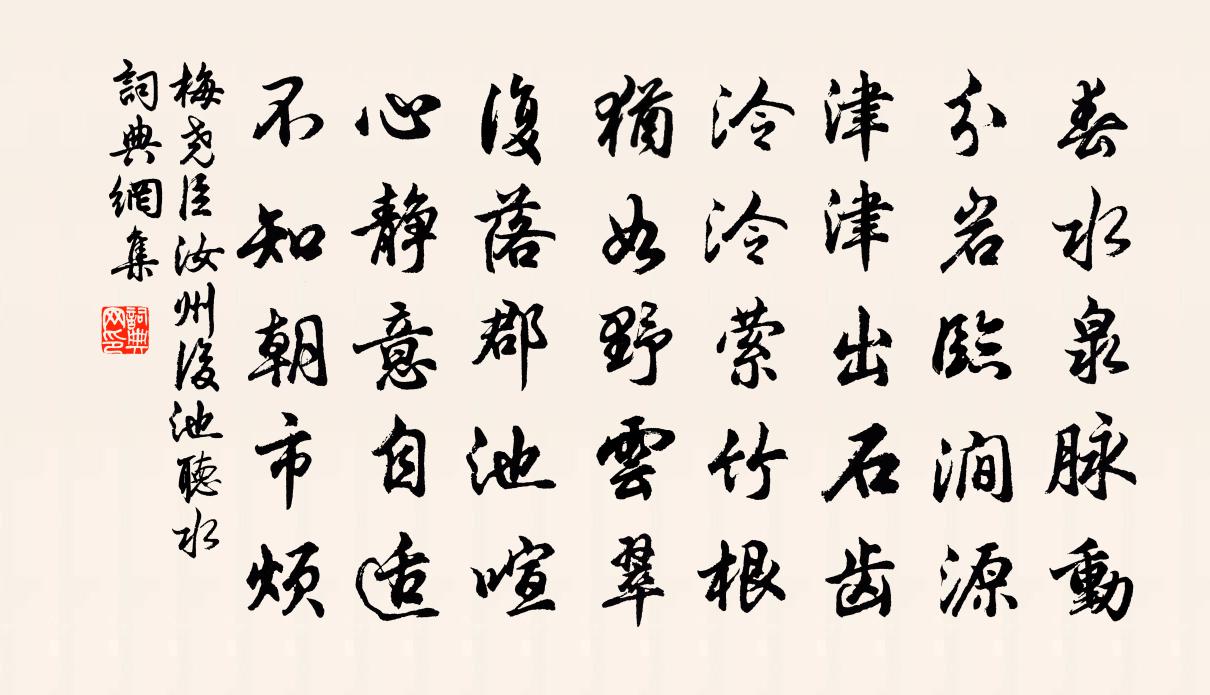 春水泉脉動
分岩臨澗源
津津出石齿
泠泠萦竹根
猶如野雲翠
復落郡池喧
心静意自适
不知朝市煩
梅尧臣汝州後池聽水
詞典網集
詞典网印